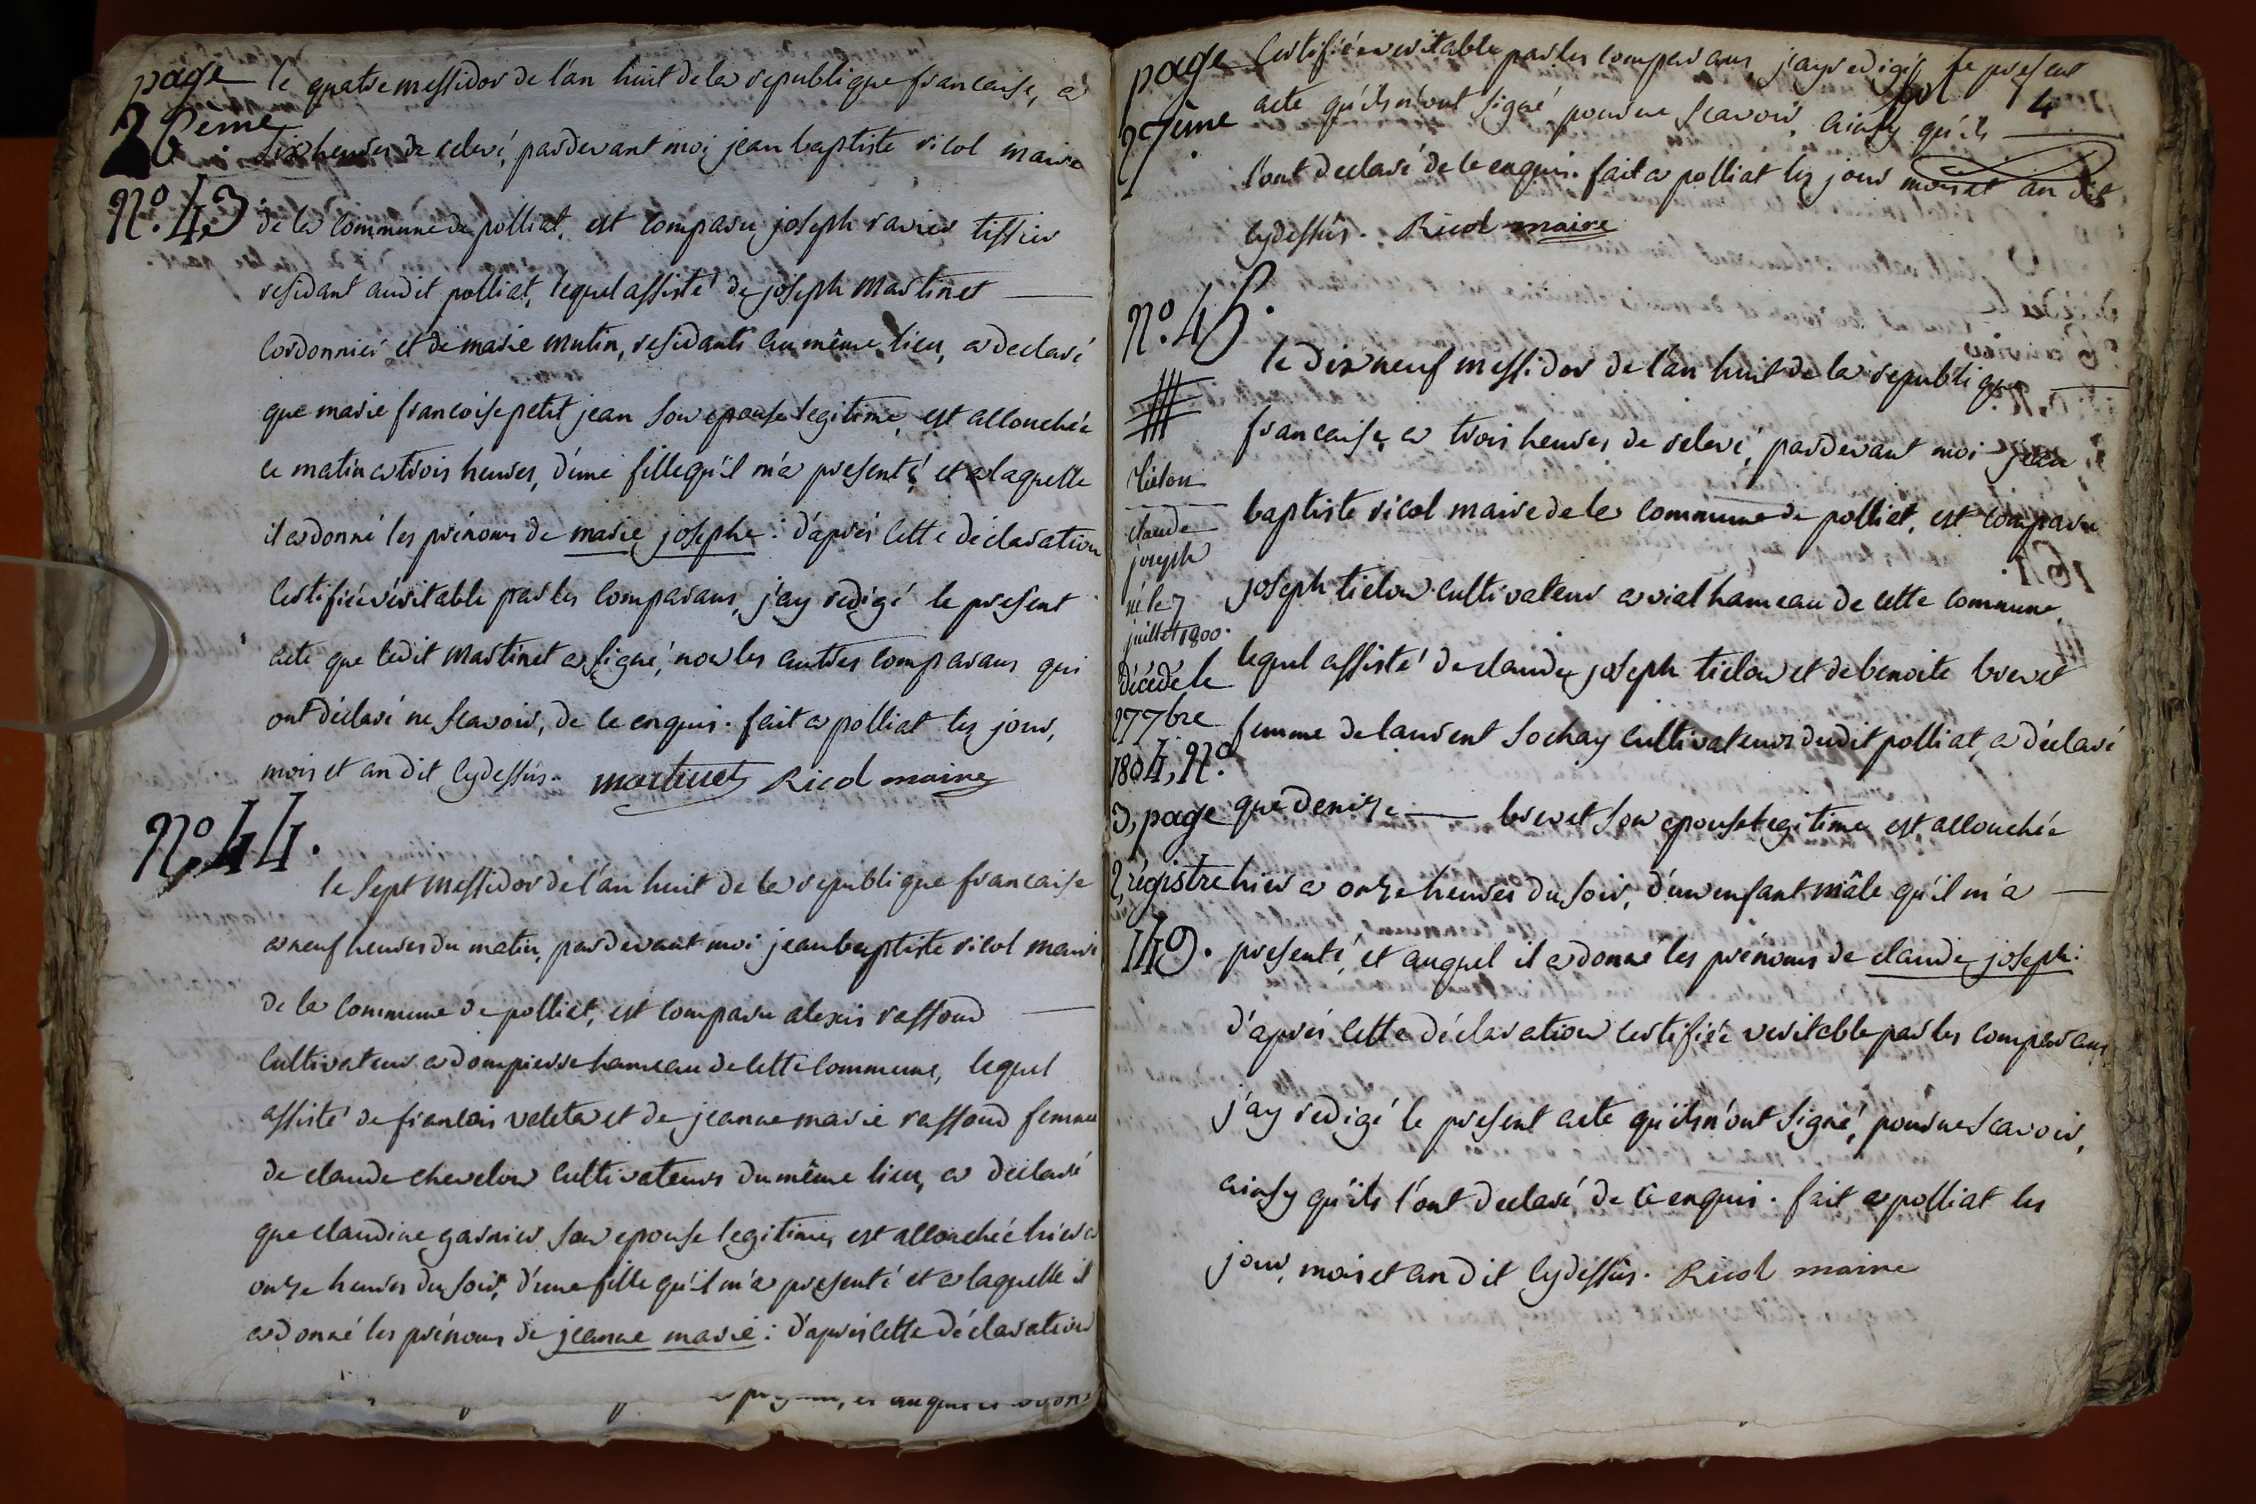 page
26ème
le quatre messidor de l'an huit de la republique francaise, a
six heures de relevé, pardevant moi jean baptiste ricol maire
N°. 43
de la commune de polliat, est comparu joseph ravier tissier
residant audit polliat, lequel assisté de joseph Martinet
cordonnier et de marie mutin, residants au même lieu, a declaré
que marie francoise petit jean son epouse legitime, est accouchée
ce matin a trois heures, d'une fille qu'il m'a presenté, et a laquelle
il a donné les prénoms de marie josephe : d'aprés cette déclaration
certifiée véritable par les comparans, j'ay redigé le present
acte que ledit Martinet a signé, non les autres comparans qui
ont déclaré ne scavoir, de ce enquis. fait a polliat les jour,
mois et an dit cydessus. martinet Ricol maire
N° 44.
le sept messidor de l'an huit de la republique francaise
a neuf heures du matin, pardevant moi jean baptiste ricol maire
de la commune de polliat, est comparu alexis raffoud
cultivateur a dompierre hameau de cette commune, lequel
assisté de francois veleta et de jeanne marie raffoud femme
de claude chevelon cultivateurs du même lieu, a déclaré
que claudine garnier son epouse legitime, est accouchée hier a
onze heures du soir, d'une fille qu'il m'a presenté et a laquelle il
a donné les prénoms de jeanne marie : d'aprés cette déclaration
et auquel il a donn
page
27ème
certifiée veritable par les comparans, j'ay redigé le present
acte qu'ils n'ont signé pour ne scavoir, ainsy qu'ils
fol 4
l'ont declaré de ce enquis. fait a polliat les jour mois et an dit
cydessus. Ricol maire
N°. 45.
le dix neuf messidor de l'an huit de la republique
francaise, a trois heures de relevé, pardevant moi jean
baptiste ricol maire de la commune de polliat, est comparu
joseph tielon cultivateur a vial hameau de cette commune,
lequel assisté de claude joseph tielon et de benoite brevet
femme de laurent sochay cultivateurs dudit polliat, a déclaré
que denize brevet son epouse legitime est accouchée
hier a onze heures du soir, d'un enfant mâle qu'il m'a
presenté, et auquel il a donné les prénoms de claude joseph :
d'aprés cette déclaration certifiée veritable par les comparans
j'ay redigé le present acte qu'ils n'ont signé, pour ne scavoir,
ainsy qu'ils l'ont declaré, de ce enquis. fait a polliat les
jour, mois et an dit cydessus. Ricol maire
tiélon
claude
joseph
né le 7
juillet 1800.
décédé le
27 7bre
1804, N°
3, page
2, régistre
149.